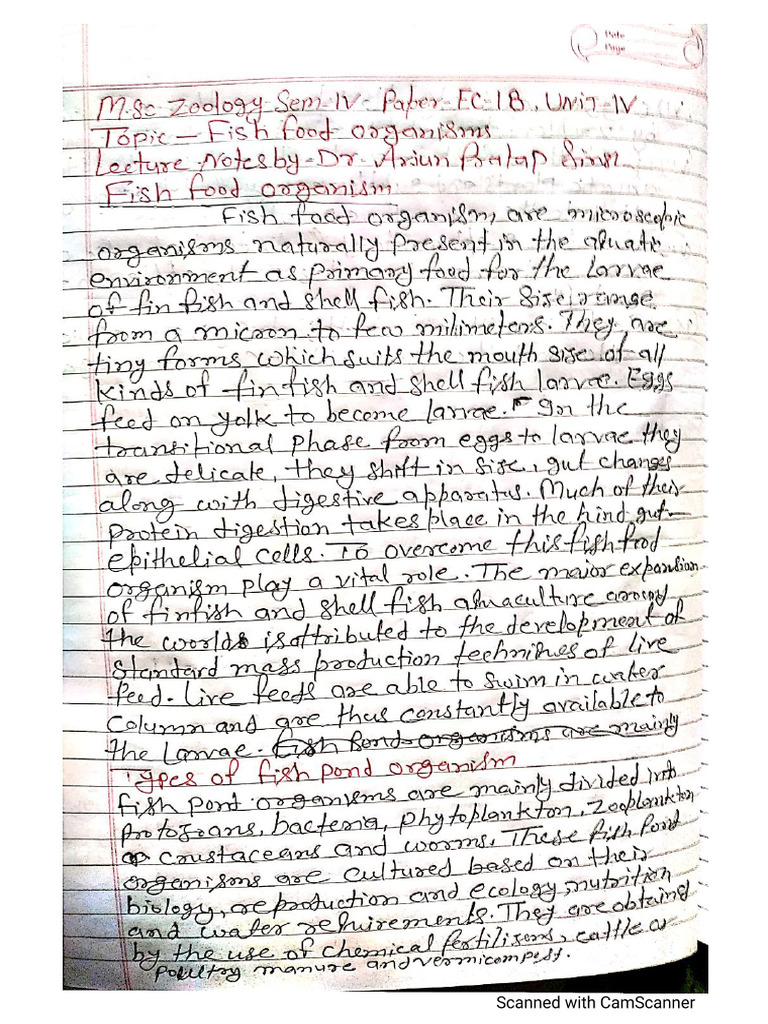 Date
Page
M.Sc Zoology Sem-IV- Paper-EC-1B, UNIT-IV
Topic – Fish food organisms
Lecture Notes by-Dr. Arjun Pratap Singh
Fish food organism
Fish food organism, are microscopic
organisms naturally present in the aquatic
environment as primary food for the larvae
of fin fish and shell fish. Their size, range
from a micron to few milimeters. They are
tiny forms which suits the mouth size of all
kinds of finfish and shell fish larvae. Eggs
feed on yolk to become larvae. In the
transitional phase from eggs to larvae they
are delicate, they shift in size, gut changes
along with digestive apparatus. Much of their
protein digestion takes place in the hind gut
epithelial cells. To overcome this fish food
organism play a vital role. The major expansion
of finfish and shell fish aquaculture around
the world is attributed to the development of
standard mass production techniques of live
feed. Live feeds are able to swim in water
column and are thus constantly available to
the larvae. Fish Pond organisms are mainly
Types of fish pond organism
fish pond organisms are mainly divided into
protozoans, bacteria, phytoplankton, zooplankton
crustaceans and worms. These fish food
organisms are cultured based on their
biology, reproduction and ecology, nutrition
and water requirements. They are obtained
by the use of chemical fertilisers, cattle or
poultry manure and vermicompost.
Scanned with CamScanner